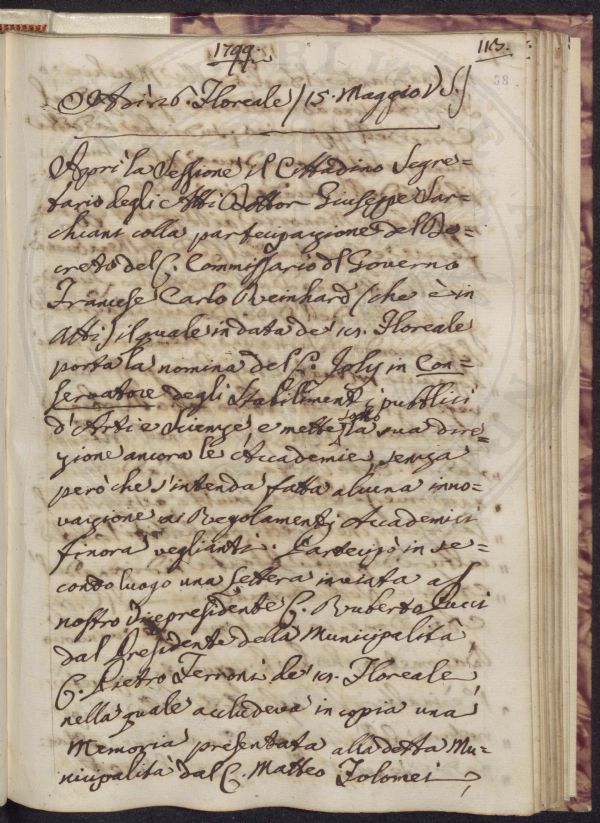 1799.
113.
58
Adì 26. Floreale / 15. Maggio V.S./
Aprì la Sessione il Cittadino Segre=
tario degli Atti Dottor Giuseppe Sar=
chiani colla partecipazione del De=
creto del C. Commissario del Governo
Francese Carlo Reinhard (che è in
Atti) il quale in data de' 19. Floreale
porta la nomina del C. Joly in Con=
servatore degli Stabilimenti pubblici
d'Arti e Scienze e mette sotto la sua dire=
zione ancora le Accademie, senza
però che s'intenda fatta alcuna inno=
vazione ai Regolamenti Accademici
finora veglianti. Partecipò in se=
condo luogo una lettera inviata al
nostro Vicepresidente C. Ruberto Pucci
dal Presidente della Municipalità
C. Pietro Ferroni de' 19. Floreale,
nella quale accludeva in copia una
Memoria presentata alla detta Mu=
nicipalità dal C. Matteo Tolomei,